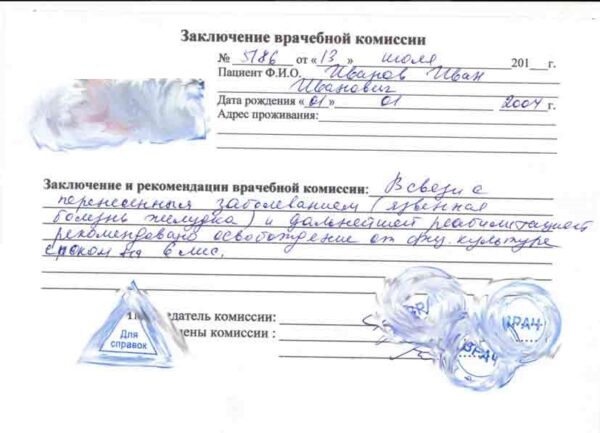 Заключение врачебной комиссии
№ 5186 от «13 » июля 201 г.
Пациент Ф.И.О. Иванов Иван
Иванович
Дата рождения «01 » 01 2004 г.
Адрес проживания:
Заключение и рекомендации врачебной комиссии: В связи с
перенесенным заболеванием (язвенная
болезнь желудка) и дальнейшей реабилитацией
рекомендовано освобождение от физ. культуре
сроком на 6 мес.
датель комиссии:
лены комиссии :
Для
справок
ВРАЧ
ВРАЧ